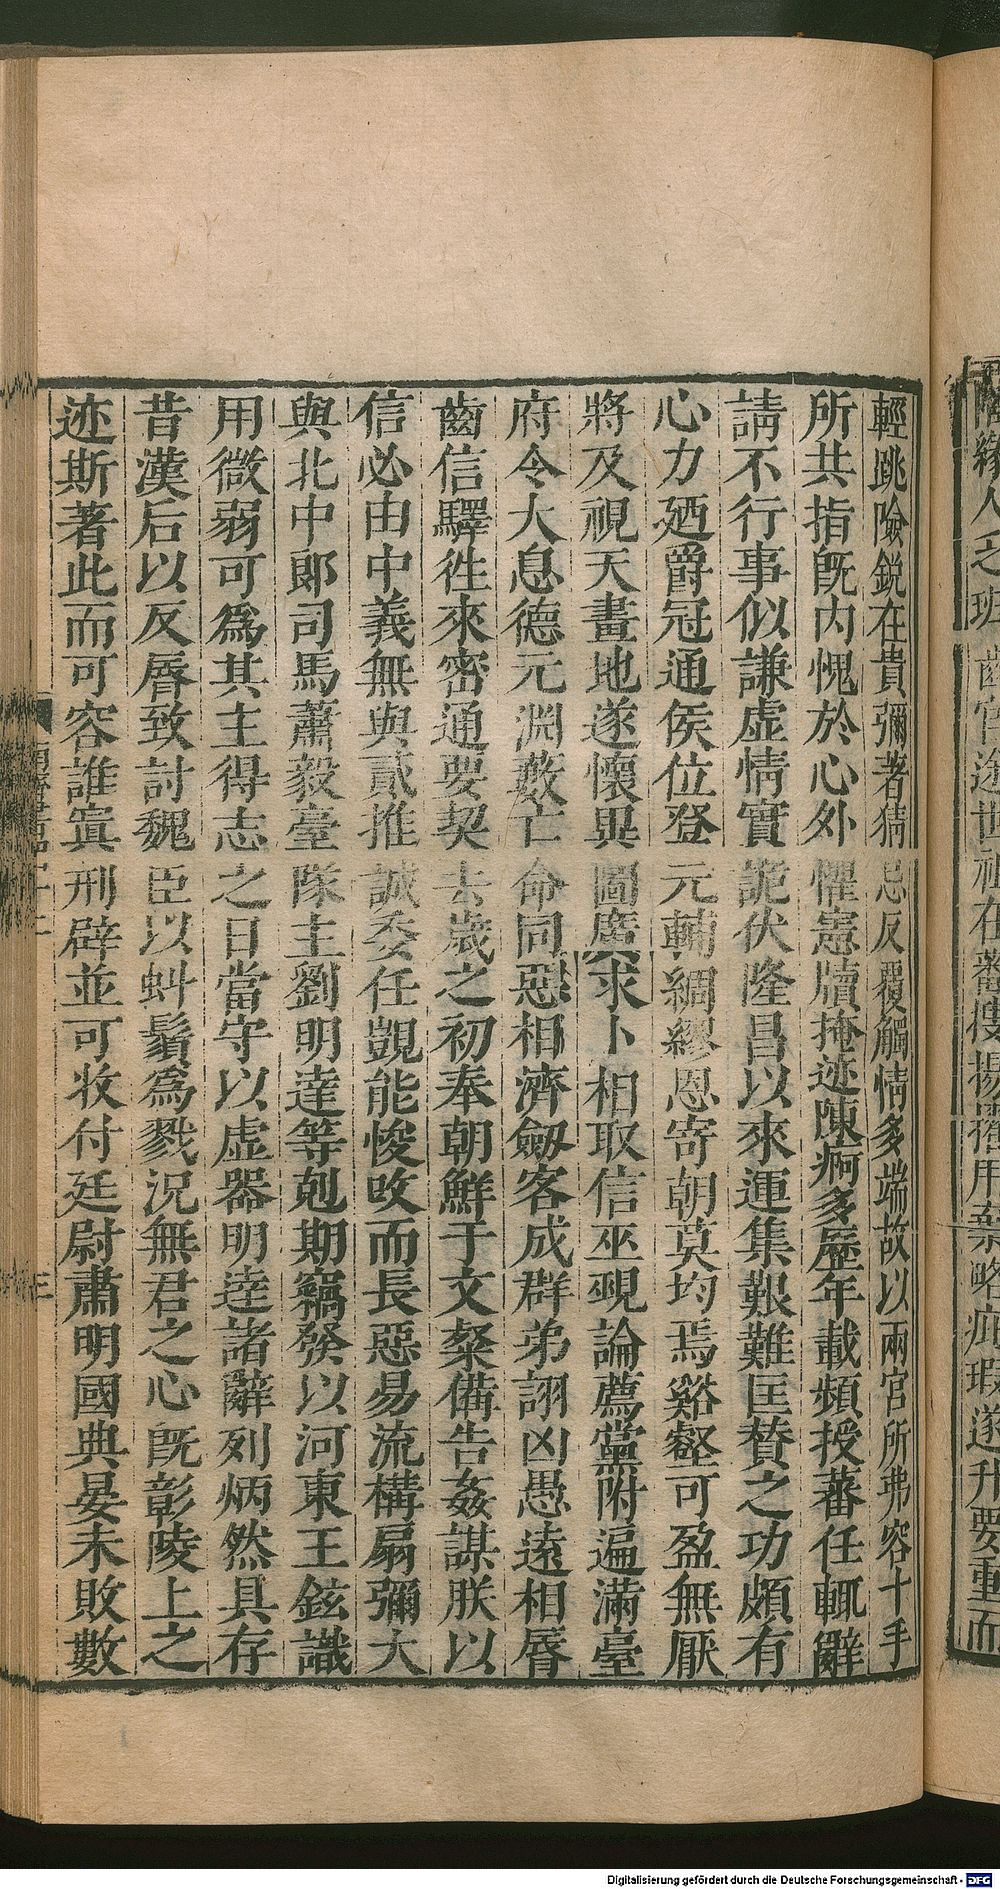 輕跳險鋭在貴彌著猜忌反覆觸情多端故以兩宫所弗容十手
所共指旣内愧於心外懼憲牘掩迹陳痾多歷年載頻授蕃任輒辭
請不行事似謙虛情實詭伏隆昌以來運集艱難匡賛之功頗有
心力廼爵冠通侯位登元輔綢繆恩寄朝莫均焉谿壑可盈無厭
將及視天畫地遂懷異圖廣求卜相取信巫覡論薦黨附遍滿臺
府令大息德元淵藪亡命同惡相濟劒客成群弟詡凶愚遠相脣
齒信驛徃來密通要契去歲之初奉朝鮮于文粲備告姦謀朕以
信必由中義無與貳推誠委任覬能悛攺而長惡易流構扇彌大
與北中郎司馬蕭毅臺隊主劉明達等剋期竊發以河東王鉉識
用微弱可爲其主得志之日當守以虛器明達諸辭列炳然具存
昔漢后以反脣致討魏臣以虯鬚爲戮况無君之心旣彰陵上之
迹斯著此而可容誰寘刑辟並可收付廷尉肅明國典晏未敗數
齒宫途世祖在蕃
而
Digitalisierung gefördert durch die Deutsche Forschungsgemeinschaft - DFG